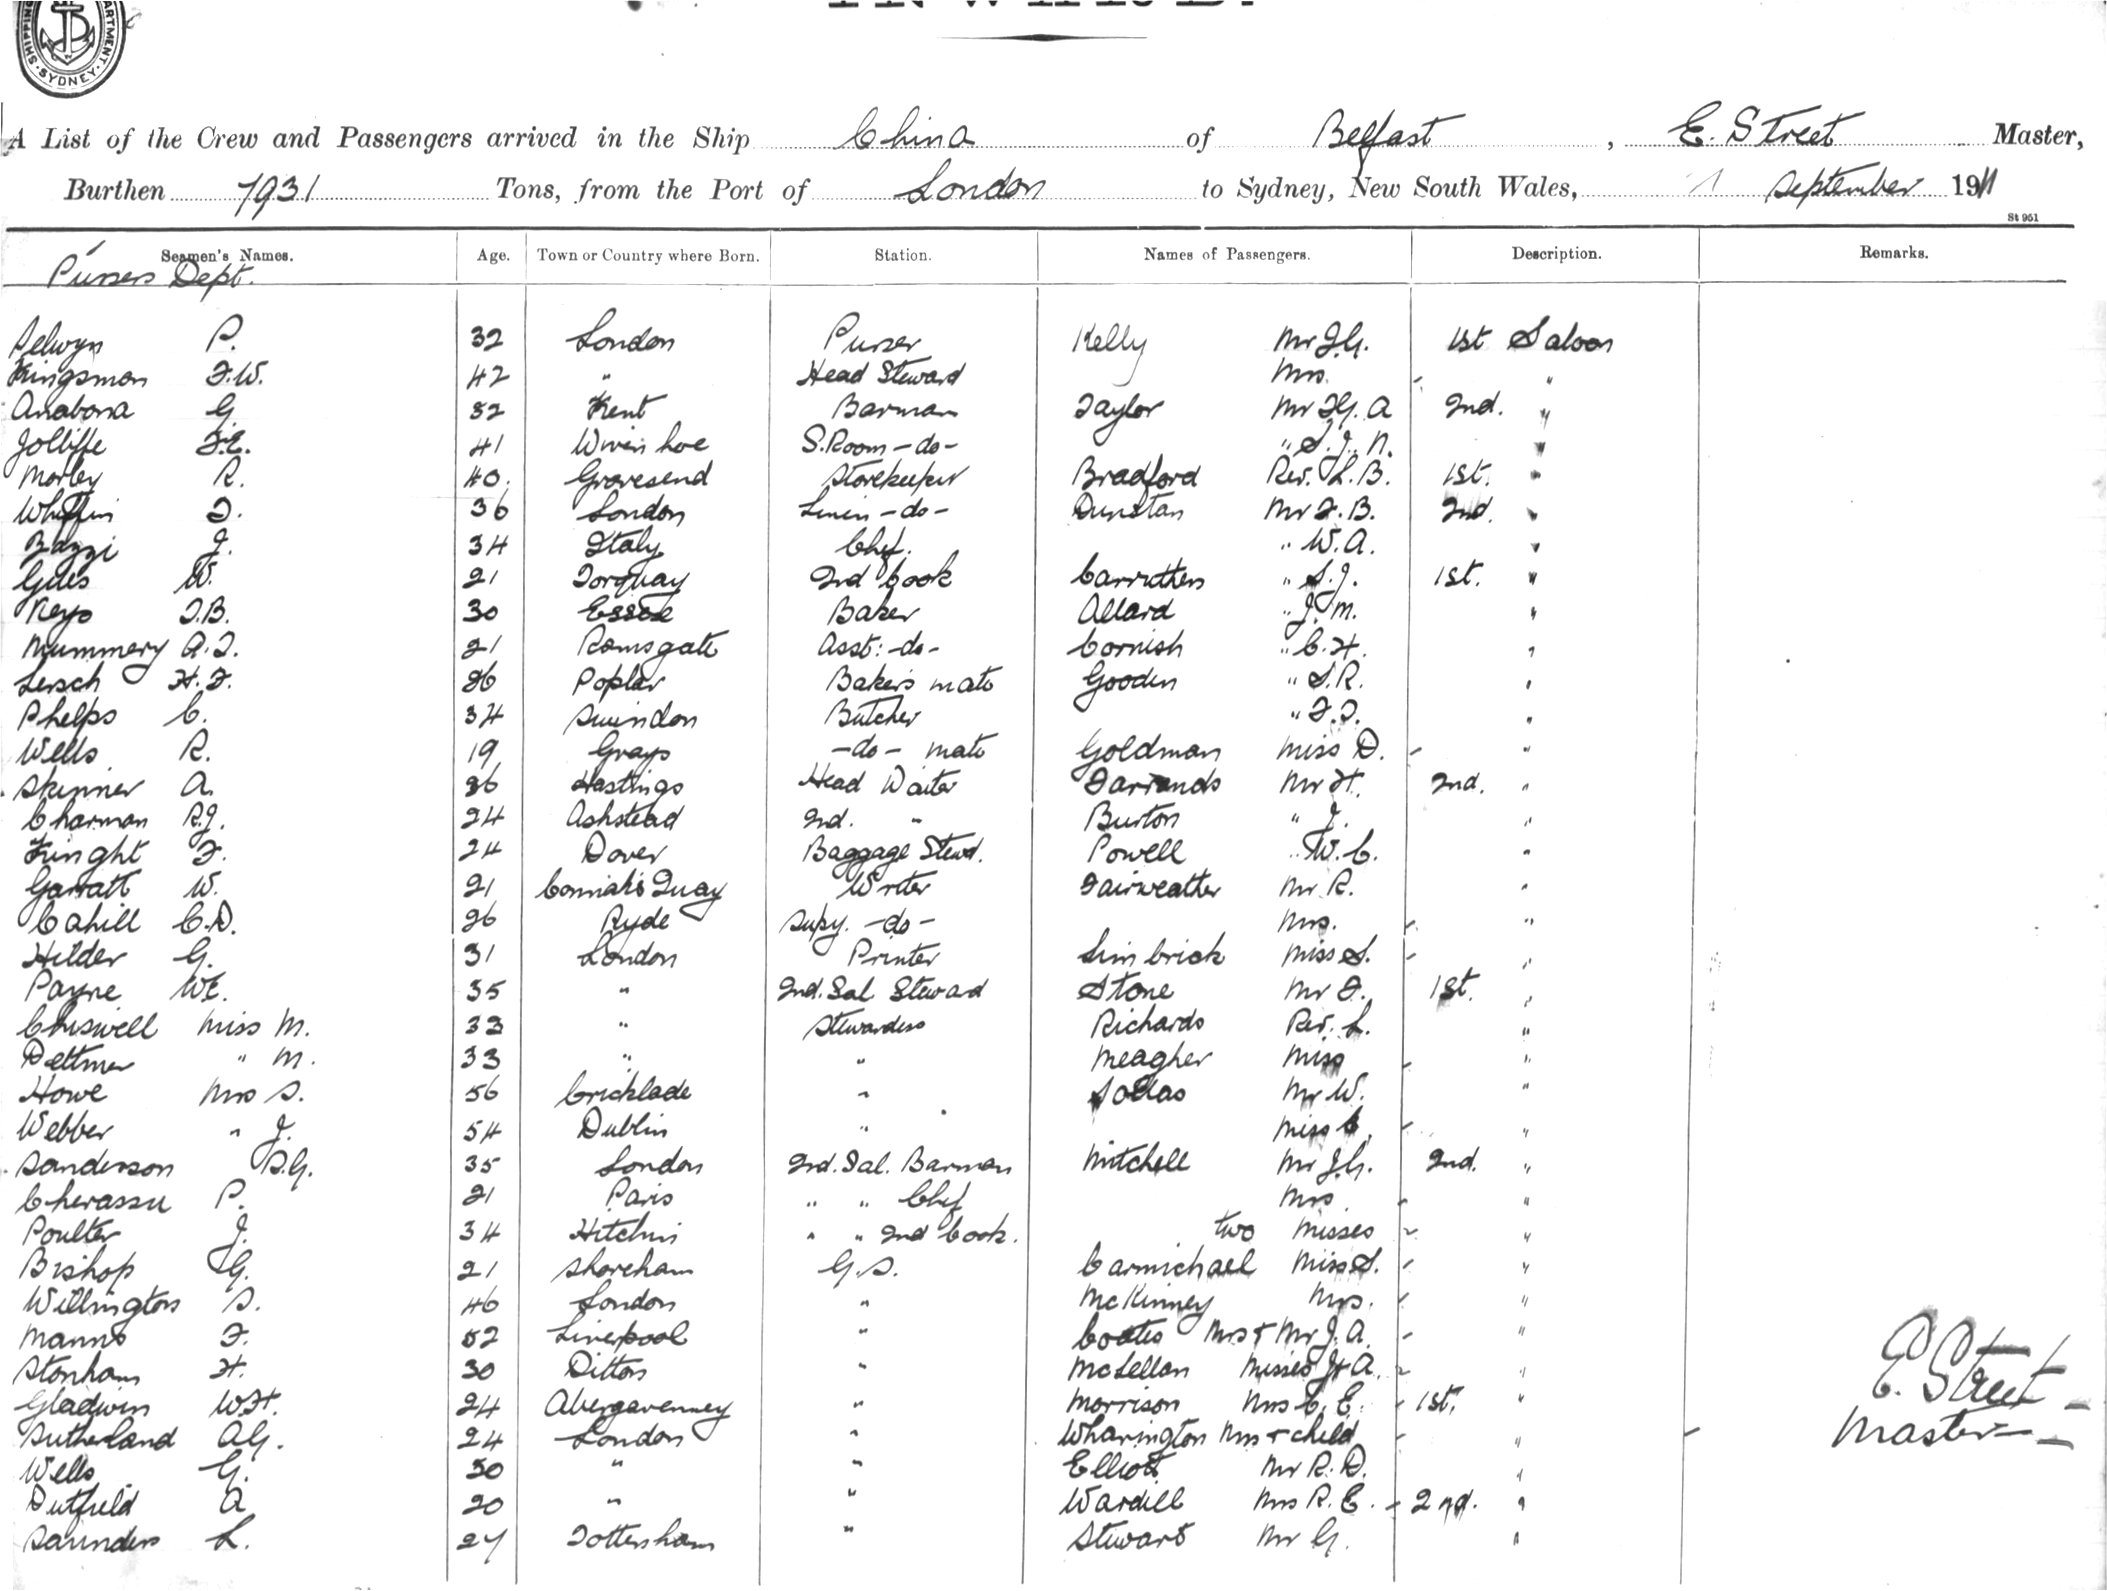 SHIPPING DEPARTMENT SYDNEY
INWARD.
A List of the Crew and Passengers arrived in the Ship China of Belfast, E. Street Master,
Burthen 7931 Tons, from the Port of London to Sydney, New South Wales, 1 September 1911
St 951
Seamen's Names. Age. Town or Country where Born. Station. Names of Passengers. Description. Remarks.
Pursers Dept.
Selwyn P. 32 London Purser Kelly Mr J.G. 1st Saloon
Kingsmon F.W. 42 " Head Steward Mrs. "
Anabona G. 32 Kent Barman Taylor Mr T.G. A 2nd. "
Jolliffe F.E. 41 Wivenhoe S.Room -do- " S.J. N. "
Morley R. 40. Gravesend Storekeeper Bradford Rev. L.B. 1st. "
Whiffin T. 36 London Linen -do- Dunstan Mr F.B. 2nd. "
Bazzi J. 34 Italy Chef. " W.A. "
Giles W. 21 Torquay 2nd Cook Carruthers " S.J. 1st. "
Keys T.B. 30 Essex Baker Allard " J.M. "
Mummery A.T. 21 Ramsgate Asst: -do- Cornish " C.H. "
Lersch H.F. 26 Poplar Bakers mate Gooden " S.R. "
Phelps C. 34 Swindon Butcher " F.T. "
Wells R. 19 Grays -do- mate Goldman Miss D. "
Skinner A. 36 Hastings Head Waiter Farrands Mr H. 2nd. "
Charman R.J. 24 Ashstead 2nd. " Burton " J. "
Kinght F. 24 Dover Baggage Stewd. Powell " W.C. "
Garratt W. 21 Connah's Quay Writer Fairweather Mr R. "
Cahill C.D. 26 Ryde Supy. -do- Mrs. "
Hilder G. 31 London Printer Limbrick Miss S. "
Payne W.E. 35 " 2nd. Sal Steward Stone Mr F. 1st. "
Chiswell Miss M. 33 " Stewardess Richards Rev. L. "
Dettmer " M. 33 " " Meagher Miss "
Howe Mrs S. 56 Cricklade " Sollas Mr W. "
Webber " J. 54 Dublin " Miss C. "
Sanderson S.G. 35 London 2nd. Sal. Barman Mitchell Mr J.G. 2nd. "
Cherassu P. 21 Paris " " Chef Mrs "
Poulter J. 34 Hitchin " " 2nd Cook. two Misses "
Bishop G. 21 Shoreham G.S. Carmichael Miss S. "
Willington S. 46 London " McKinney Mrs. "
Manns F. 52 Liverpool " Coates Mrs & Mr J.A. "
Stonham H. 30 Ditton " McLellan Misses J & A. "
Gladwin W.H. 24 Abergavenney " Morrison Mrs C.E. 1st. "
Sutherland A.G. 24 London " Wharington Mrs & child "
Wells G. 30 " " Elliott Mr R.D. "
Dutfield A 20 " " Wardill Mrs R.E. 2nd. "
Saunders L. 27 Tottenham " Stewart Mr G. "
E. Street
Master